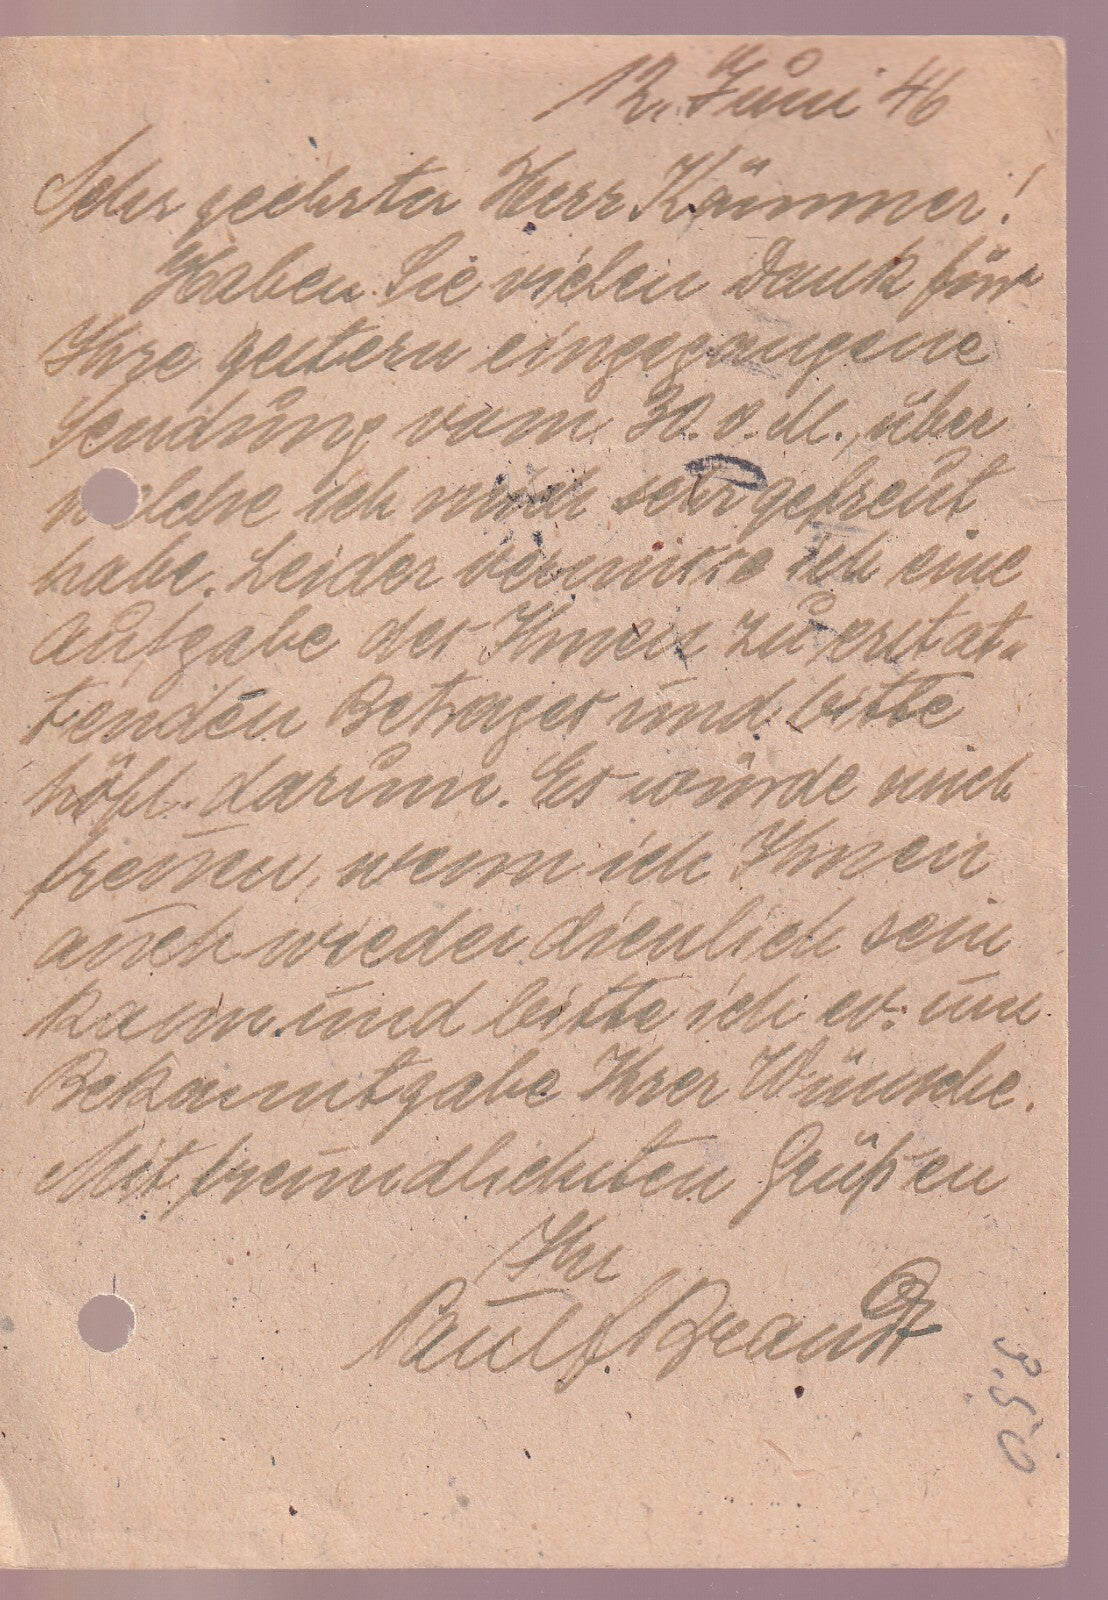 12. Juni 46
Sehr geehrter Herr Kämmer!
Haben Sie vielen Dank für
Ihre gestern eingegangene
Sendung vom 30. v. M., über
welche ich mich sehr gefreut
habe. Leider vermisse ich eine
Aufgabe des Ihnen zu erstat-
tenden Betrages und bitte
höfl. darum. Es würde mich
freuen, wenn ich Ihnen
auch wieder dienlich sein
kann und bitte ich ev. um
Bekanntgabe Ihrer Wünsche.
Mit freundlichsten Grüßen
Ihr
Paul Brandt
3.50